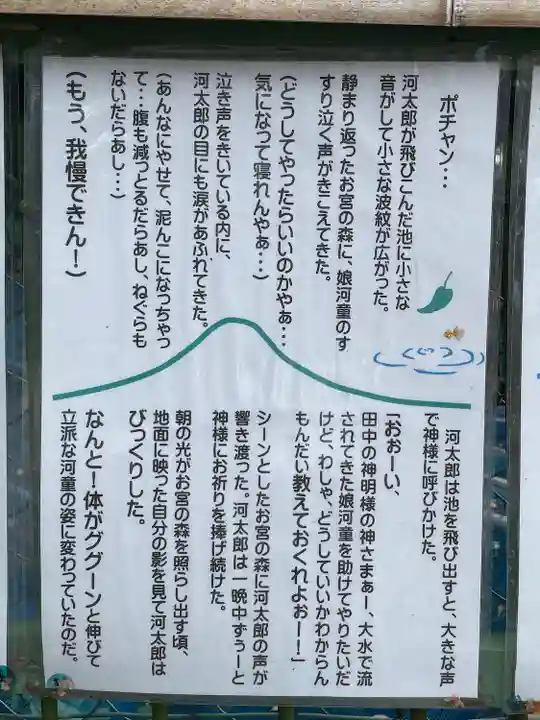 ポチャン・・・
河太郎が飛びこんだ池に小さな
音がして小さな波紋が広がった。
静まり返ったお宮の森に、娘河童のす
すり泣く声がきこえてきた。
(どうしてやったらいいのかやぁ・・・
気になって寝れんやぁ・・・)
泣き声をきいている内に、
河太郎の目にも涙があふれてきた。
(あんなにやせて、泥んこになっちゃっ
て・・・腹も減っとるだらあし、ねぐらも
ないだらあし・・・)
(もう、我慢できん!)
河太郎は池を飛び出すと、大きな声
で神様に呼びかけた。
「おぉーい、
田中の神明様の神さまぁー、大水で流
されてきた娘河童を助けてやりたいだ
けど、わしゃ、どうしていいかわからん
もんだい教えておくれよおー!」
シーンとしたお宮の森に河太郎の声が
響き渡った。河太郎は一晩中ずぅーと
神様にお祈りを捧げ続けた。
朝の光がお宮の森を照らし出す頃、
地面に映った自分の影を見て河太郎は
びっくりした。
なんと!体がググーンと伸びて
立派な河童の姿に変わっていたのだ。